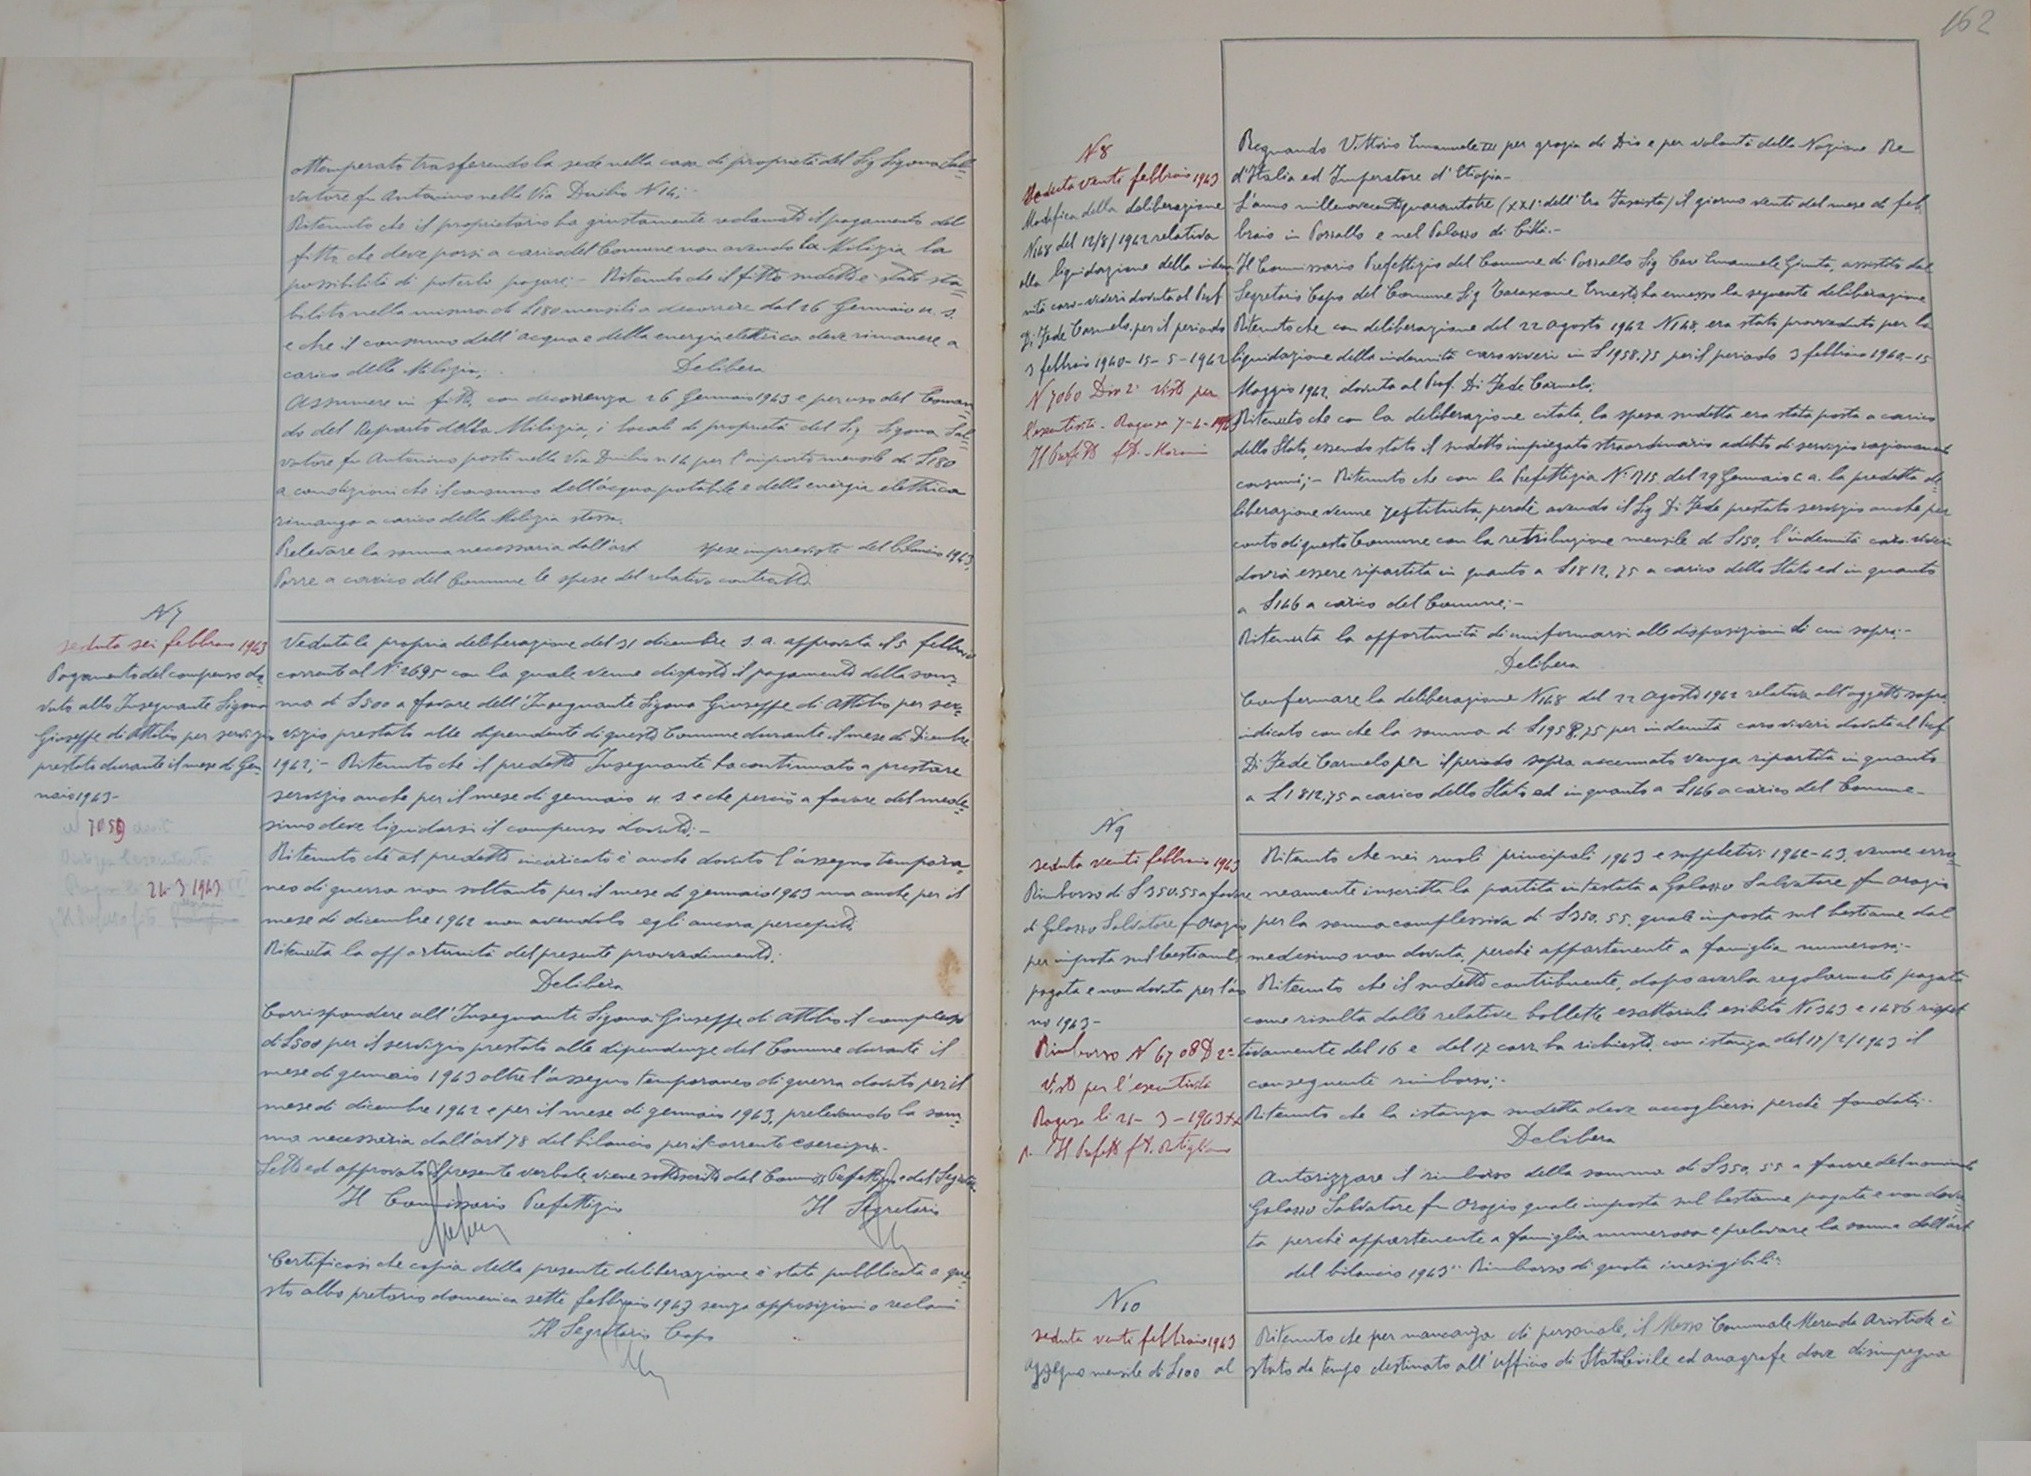 Attemperato trasferendo la sede nella casa di proprietà del Sig Sigona Sal=
vatore fu Antonino nella Via Duilio N 14;-
Ritenuto che il proprietario ha giustamente reclamato il pagamento del
fitto che deve porsi a carico del Comune non avendo la Milizia la
possibilità di poterlo pagare;- Ritenuto che il fitto sudetto è stato sta=
bilito nella misura di £180 mensili a decorrere dal 26 Gennaio u. s.
e che il consumo dell'acqua e della energia elettrica deve rimanere a
carico della Milizia;. Delibera
Assumere in fitto, con decorrenza 26 Gennaio 1943 e per uso del Coman=
do del Reparto della Milizia, i locali di proprietà del Sig Sigona Sal=
vatore fu Antonino posti nella Via Duilio n 14 per l'importo mensile di £180
a condizioni che il consumo dell'acqua potabile e della energia elettrica
rimanga a carico della Milizia stessa.
Prelevare la somma necessaria dall'art spese impreviste del bilancio 1943.
Porre a carico del Comune le spese del relativo contratto.
N 7
seduta sei febbraio 1943
Pagamento del compenso do=
vuto allo Insegnante Sigona
Giuseppe di Attilio per servizio
prestato durante il mese di Gen=
naio 1943-
N 7059
24-3 1943
Veduta la propria deliberazione del 31 dicembre s. a. approvata il 5 febbraio
corrente al N° 2695 con la quale venne disposto il pagamento della som=
ma di £500 a favore dell'Insegnante Sigona Giuseppe di Attilio per ser=
vizio prestato alle dipendente di questo Comune durante il mese di Dicembre
1942;- Ritenuto che il predetto Insegnante ha continuato a prestare
servizio anche per il mese di gennaio u. s. e che perciò a favore del mede=
simo deve liquidarsi il compenso dovuto;-
Ritenuto che al predetto incaricato è anche dovuto l'assegno tempora=
neo di guerra non soltanto per il mese di gennaio 1943 ma anche per il
mese di dicembre 1942 non avendolo egli ancora percepito.
Ritenuta la opportunità del presente provvedimento;
Delibera
Corrispondere all'Insegnante Sigona Giuseppe di Attilio il compenso
di £500 per il servizio prestato alle dipendenze del Comune durante il
mese di gennaio 1943 oltre l'assegno temporaneo di guerra dovuto per il
mese di dicembre 1942 e per il mese di gennaio 1943, prelevando la som=
ma necessaria dall'art 78 del bilancio per il corrente esercizio-
Letto ed approvato il presente verbale viene sottoscritto dal Commiss Prefettizio e dal Segretar.
Il Commissario Prefettizio Il Segretario
Certificasi che copia della presente deliberazione è stata pubblicata a que=
sto albo pretorio domenica sette febbraio 1943 senza opposizioni o reclami
Il Segretario Capo
162
N 8
Seduta venti febbraio 1943
Modifica della deliberazione
N 148 del 12/8/1942 relativa
alla liquidazione della inden
nità caro-viveri dovuta al Prof
Di Fede Carmelo, per il periodo
3 febbraio 1940-15-5-1942
N 7060 Div 2° Visto per
l'esecutività. Ragusa 7-4-1943
Il Prefetto
Regnando Vittorio Emanuele III per grazia di Dio e per volontà della Nazione Re
d'Italia ed Imperatore d'Etiopia-
L'anno millenovecentoquarantatre (XXI° dell'Era Fascista) il giorno venti del mese di feb
braio in Pozzallo e nel Palazzo di Città.-
Il Commissario Prefettizio del Comune di Pozzallo Sig Cav Emanuele Giunta, assistito dal
Segretario Capo del Comune Sig Tarascone Ernesto, ha emesso la seguente deliberazione
Ritenuto che con deliberazione del 22 agosto 1942 N 148 era stato provveduto per la
liquidazione della indennità caro viveri in £1958,75 per il periodo 3 febbraio 1940-15
Maggio 1942, dovuta al Prof. Di Fede Carmelo;
Ritenuto che con la deliberazione citata, la spesa sudetta era stata posta a carico
dello Stato, essendo stato il sudetto impiegato straordinario adibito al servizio razionamento
consumi;- Ritenuto che con la Prefettizia N° 1715 del 29 Gennaio c. a. la predetta de=
liberazione venne restituita, perchè avendo il Sig Di Fede prestato servizio anche per
conto di questo Comune con la retribuzione mensile di £150, l'indennità caro-viveri
dovrà essere ripartita in quanto a £1812,75 a carico dello Stato ed in quanto
a £146 a carico del Comune;-
Ritenuta la opportunità di uniformarsi alle disposizioni di cui sopra;-
Delibera
Confermare la deliberazione N 148 del 22 agosto 1942 relativa all'oggetto sopra
indicato con che la somma di £1958,75 per indennità caro viveri dovuta al Prof
Di Fede Carmelo per il periodo sopra accennato venga ripartita in quanto
a £1812,75 a carico dello Stato ed in quanto a £146 a carico del Comune-
N 9
seduta venti febbraio 1943
Rimborso di £350.55 a favore
di Galazzo Salvatore fu Orazio
per imposta sul bestiame
pagata e non dovuta per l'an
no 1943-
Rimborso N 6708 D 2a
Visto per l'esecutività
Ragusa li 21-3-1943 XXI
p. Il Prefetto
Ritenuto che nei ruoli principali 1943 e suppletivi 1942-43, venne erro=
neamente inscritta la partita intestata a Galazzo Salvatore fu Orazio
per la somma complessiva di £350.55, quale imposta sul bestiame dal
medesimo non dovuta, perchè appartenente a famiglia numerosa;-
Ritenuto che il sudetto contribuente, dopo averla regolarmente pagata
come risulta dalle relative bollette esattoriali esibite N 1343 e 1486 rispet
tivamente del 16 e del 17 corr. ha richiesto con istanza del 17/2/1943 il
conseguente rimborso;-
Ritenuto che la istanza sudetta deve accogliersi perchè fondata;-
Delibera
Autorizzare il rimborso della somma di £350,55 a favore del nominato
Galazzo Salvatore fu Orazio quale imposta sul bestiame pagata e non dovu=
ta perchè appartenente a famiglia numerosa e prelevare la somma dall'art
del bilancio 1943 "Rimborso di quota inesigibili"
N 10
seduta venti febbraio 1943
assegno mensile di £100 al
Ritenuto che per mancanza di personale, il Messo Comunale Merenda Aristide è
stato da tempo destinato all'ufficio di Stato Civile ed anagrafe dove disimpegna